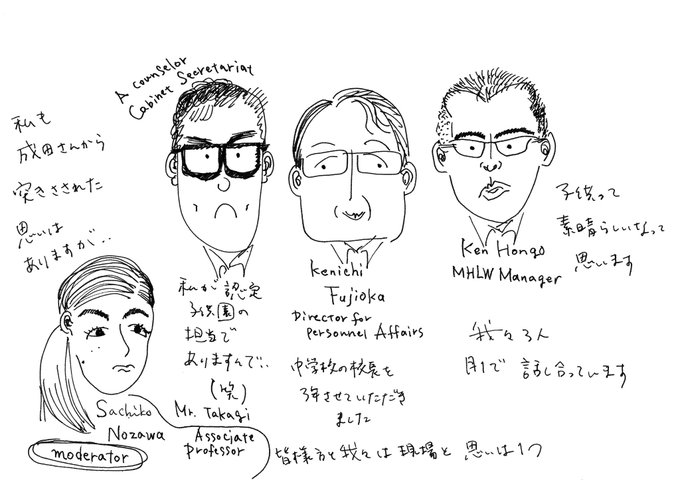 A counselor
Cabinet Secretariat
私も
成田さんから
突きさされた
思いは
ありますが..
Ken Hongo
MHLW Manager
子供って
素晴らしいなって
思います
Kenichi
Fujioka
Director for
personnel Affairs
私が認定
子供園の
担当で
ありますんで..
(笑)
Mr. Takagi
中学校の校長を
3年させていただき
ました
我々3人
月1で 話し合っています
Sachiko
Nozawa
Associate
professor
moderator
皆様方と我々は現場と 思いは1つ